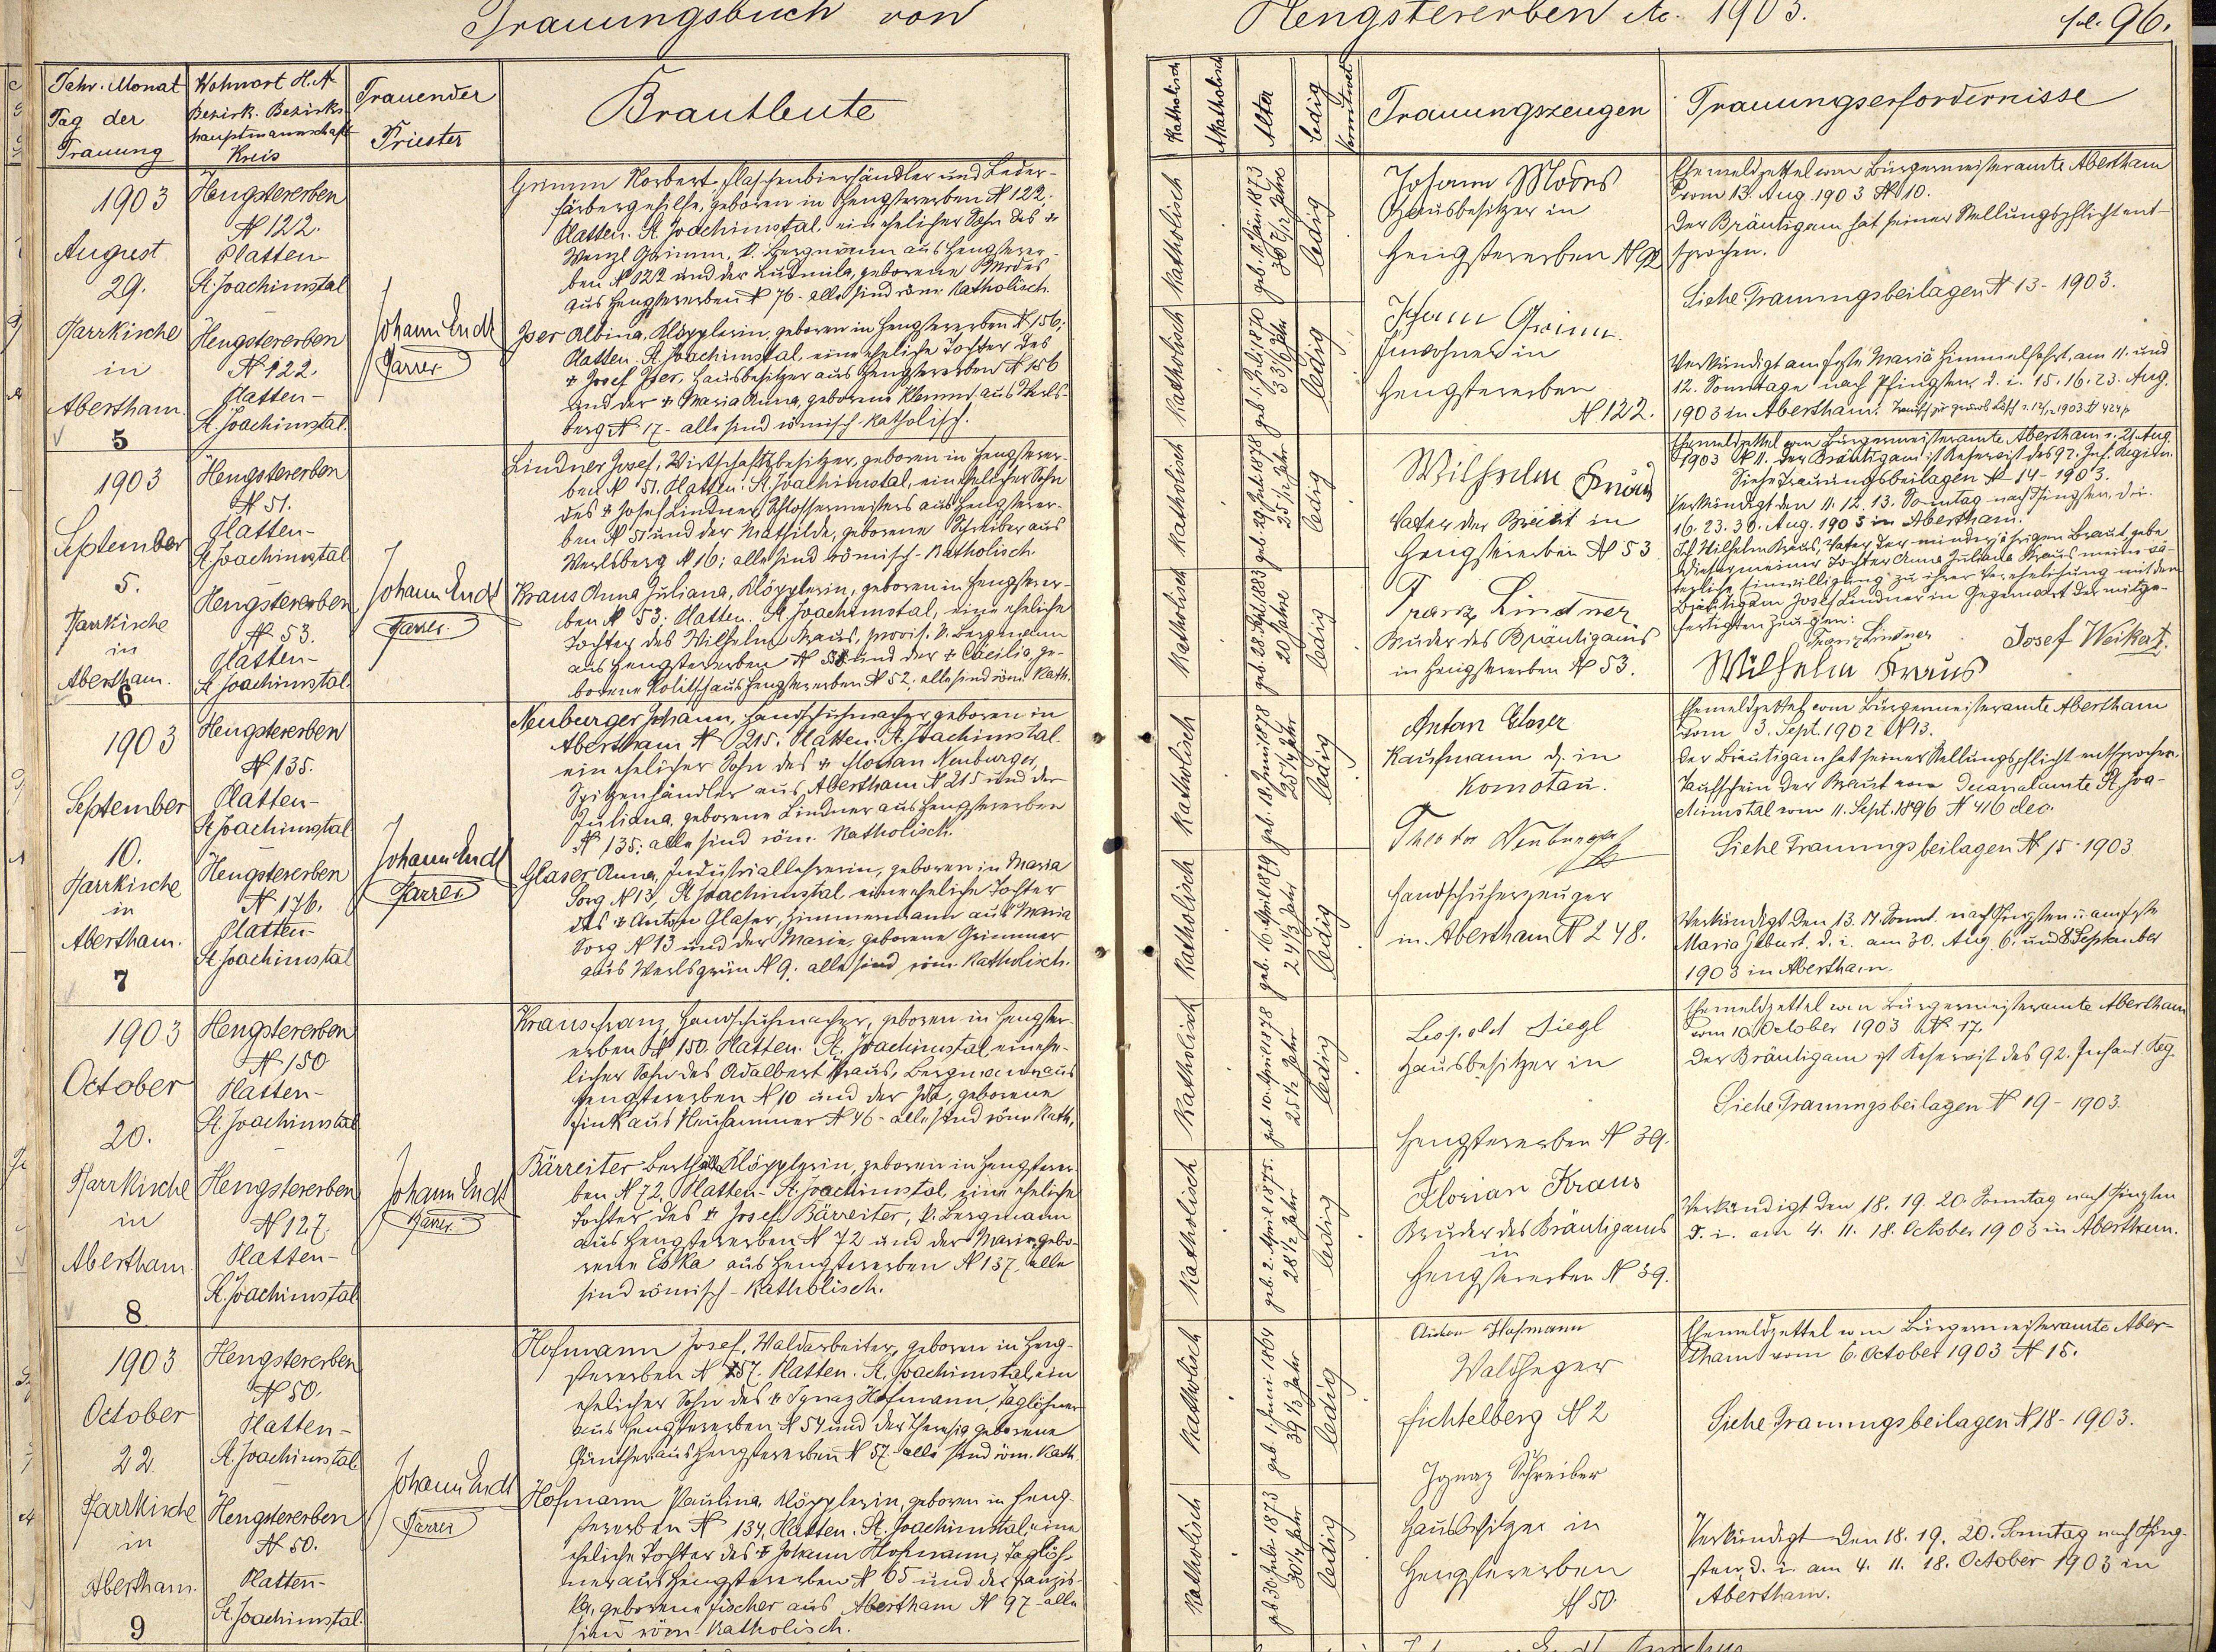 Trauungsbuch von Hengstererben No. 1903. fol. 96.
Jahr. Monat
Tag der
Trauung
Wohnort H. N.
Bezirk. Bezirks-
hauptmannschaft
Kreis
Trauender
Priester
Brautleute
Katholisch
Akatholisch
Alter
ledig
verwitwet
Trauungszeugen
Trauungserfordernisse
1903
August
29.
Pfarrkirche
in
Abertham.
5
Hengstererben
N 122.
Platten-
St. Joachimstal
Hengstererben
N 122.
Platten-
St. Joachimstal.
Johann Endt
Pfarrer
Grimm Norbert, Flaschenbierhändler und Leder-
färbergehilfe, geboren in Hengstererben N 122;
Platten. St. Joachimstal, ein ehelicher Sohn des +
Wenzl Grimm, k. Bergmann aus Hengsterer-
ben N 122 und der Ludmila, geborene Modes
aus Hengstererben N 76 - alle sind röm. Katholisch.
Iser Albina, Klöpplerin, geboren in Hengstererben N 156;
Platten. St. Joachimstal, eine eheliche Tochter des
+ Josef Iser, Hausbesitzer aus Hengstererben N 156
und der + Maria Anna, geborene Klemm aus Werls-
berg N 17 - alle sind römisch-katholisch.
Katholisch
geb. Juni 1873
ledig
Katholisch
geb. 1. Juli 1870
ledig
Johann Modes
Hausbesitzer in
Hengstererben N 92
Johann Grimm
Inwohner in
Hengstererben
N 122.
Ehemeldzettel vom Bürgermeisteramte Abertham
vom 13. Aug. 1903 N 10.
Der Bräutigam hat seiner Stellungspflicht ent-
sprochen.
Siehe Trauungsbeilagen N 13 - 1903.
Verkündigt am Feste Mariä Himmelfahrt, am 11. und
12. Sonntage nach Pfingsten d. i. 15. 16. 23. Aug.
1903 in Abertham.
1903
September
5.
Pfarrkirche
in
Abertham.
6
Hengstererben
N 51.
Platten-
St. Joachimstal
Hengstererben
N 53.
Platten-
St. Joachimstal.
Johann Endt
Pfarrer.
Lindner Josef, Wirtschaftsbesitzer, geboren in Hengsterer-
ben N 51. Platten. St. Joachimstal, ein ehelicher Sohn
des + Josef Lindner, Schlossermeisters aus Hengsterer-
ben N 51 und der Mathilde, geborene Schreiber aus
Werlsberg N 16; alle sind römisch-Katholisch.
Kraus Anna Juliana, Klöpplerin, geboren in Hengsterer-
ben N 53; Platten. St. Joachimstal, eine eheliche
Tochter des Wilhelm Kraus, provis. k. Bergmann
aus Hengstererben N 53 und der + Cäcilia, ge-
borene Kolitsch aus Hengstererben N 52; alle sind röm. Kath.
Katholisch
geb. 29. Juli 1878
25 1/12 Jahr
ledig
Katholisch
geb. 28. Sept. 1883
20 Jahre
ledig
Wilhelm Kraus
Vater der Braut in
Hengstererben N 53
Franz Lindner
Bruder des Bräutigams
in Hengstererben N 53.
Ehemeldzettel vom Bürgermeisteramte Abertham v. 21. Aug.
1903 N 11. Der Bräutigam ist Reservist des 92. Inf. Regim.
Siehe Trauungsbeilagen N 14 - 1903.
Verkündigt den 11. 12. 13. Sonntag nach Pfingsten, d. i.
16. 23. 30. Aug. 1903 in Abertham.
Ich Wilhelm Kraus, Vater der minderjährigen Braut, gebe
dieser meiner Tochter Anna Juliana Kraus meine vä-
terliche Einwilligung zu ihrer Verehelichung mit dem
Bräutigam Josef Lindner in Gegenwart der mitge-
fertigten Zeugen:
Franz Lindner
Josef Weikert.
Wilhelm Kraus
1903
September
10.
Pfarrkirche
in
Abertham.
7
Hengstererben
N 135.
Platten-
St. Joachimstal
Hengstererben
N 176.
Platten-
St. Joachimstal
Johann Endt
Pfarrer
Neuburger Johann, Handschuhmacher, geboren in
Abertham N 215. Platten. St. Joachimstal
ein ehelicher Sohn des + Florian Neuburger,
Spitzenhändler aus Abertham N 215 und der
Juliana, geborene Lindner aus Hengstererben
N 135; alle sind röm. Katholisch.
Glaser Anna, Industriallehrerin, geboren in Maria
Sorg N 13, St. Joachimstal eine eheliche Tochter
des + Anton Glaser, Zimmermann aus Maria
Sorg N 13 und der Marie, geborene Grimmer
aus Werlsgrün N 9; alle sind röm. Katholisch.
Katholisch
geb. 18. Juni 1878
25 1/4 Jahr
ledig
Katholisch
geb. 16. April 1879
24 1/3 Jahr
ledig
Anton Glaser
Kaufmann d. in
Komotau.
Theodor Neuburger
Handschuherzeuger
in Abertham N 248.
Ehemeldzettel vom Bürgermeisteramte Abertham
vom 3. Sept. 1902 N 13.
Der Bräutigam hat seiner Stellungspflicht entsprochen.
Taufschein der Braut vom Decanalamte St. Joa-
chimstal vom 11. Sept. 1896 N 416 dec.
Siehe Trauungsbeilagen N 15 - 1903.
Verkündigt den 13. 14. Sonnt. nach Pfingsten u. am Feste
Maria Geburt, d. i. am 30. Aug. 6. und 8 September
1903 in Abertham.
1903
October
20.
Pfarrkirche
in
Abertham.
8
Hengstererben
N 150
Platten-
St. Joachimstal
Hengstererben
N 127.
Platten-
St. Joachimstal
Johann Endt
Pfarrer
Kraus Franz, Handschuhmacher, geboren in Hengster-
erben N 150. Platten. St. Joachimstal, ein ehe-
licher Sohn des Adalbert Kraus, Bergmann aus
Hengstererben N 10 und der Ida, geborene
Fink aus Neuhammer N 46 - alle sind röm. Kath.
Bärreiter Bertha, Klöpplerin, geboren in Hengsterer-
ben N 72, Platten - St. Joachimstal, eine eheliche
Tochter des + Josef Bärreiter, k. Bergmann
aus Hengstererben N 72 und der Marie, gebo-
rene Eska aus Hengstererben N 137, alle
sind römisch-Katholisch.
Katholisch
geb. 10. April 1878
25 1/2 Jahr
ledig
Katholisch
geb. 2. April 1875.
28 1/2 Jahr
ledig
Leopold Siegl
Hausbesitzer in
Hengstererben N 39.
Florian Kraus
Bruder des Bräutigams
in
Hengstererben N 39.
Ehemeldzettel vom Bürgermeisteramte Abertham
vom 10. October 1903 N 17.
Der Bräutigam ist Reservist des 92. Infant. Reg.
Siehe Trauungsbeilagen N 19 - 1903.
Verkündigt den 18. 19. 20. Sonntag nach Pfingsten
d. i. am 4. 11. 18. October 1903 in Abertham.
1903
October
22.
Pfarrkirche
in
Abertham.
9
Hengstererben
N 50.
Platten-
St. Joachimstal
Hengstererben
N 50.
Platten-
St. Joachimstal.
Johann Endt
Pfarrer
Hofmann Josef, Waldarbeiter, geboren in Heng-
stererben N 157. Platten. St. Joachimstal, ein
ehelicher Sohn des + Ignaz Hofmann, Taglöhner
aus Hengstererben N 54 und der Theresia geborene
Günther aus Hengstererben N 57 - alle sind röm. Kath.
Hofmann Paulina, Klöpplerin, geboren in Heng-
stererben N 134, Platten. St. Joachimstal, eine
eheliche Tochter des + Johann Hofmann, Taglöh-
ner aus Hengstererben N 65 und der Franzis-
ka, geborene Fischer aus Abertham N 97 - alle
sind röm. Katholisch.
Katholisch
geb. 1. Juni 1864
39 1/3 Jahr
ledig
Katholisch
geb. 30. Juli 1873
30 1/4 Jahr
ledig
Anton Hofmann
Waldheger
Fichtelberg N 2
Ignaz Schreiber
Hausbesitzer in
Hengstererben
N 50.
Ehemeldzettel vom Bürgermeisteramte Aber-
tham vom 6. October 1903 N 15.
Siehe Trauungsbeilagen N 18 - 1903.
Verkündigt den 18. 19. 20. Sonntag nach Pfing-
sten, d. i. am 4. 11. 18. October 1903 in
Abertham.